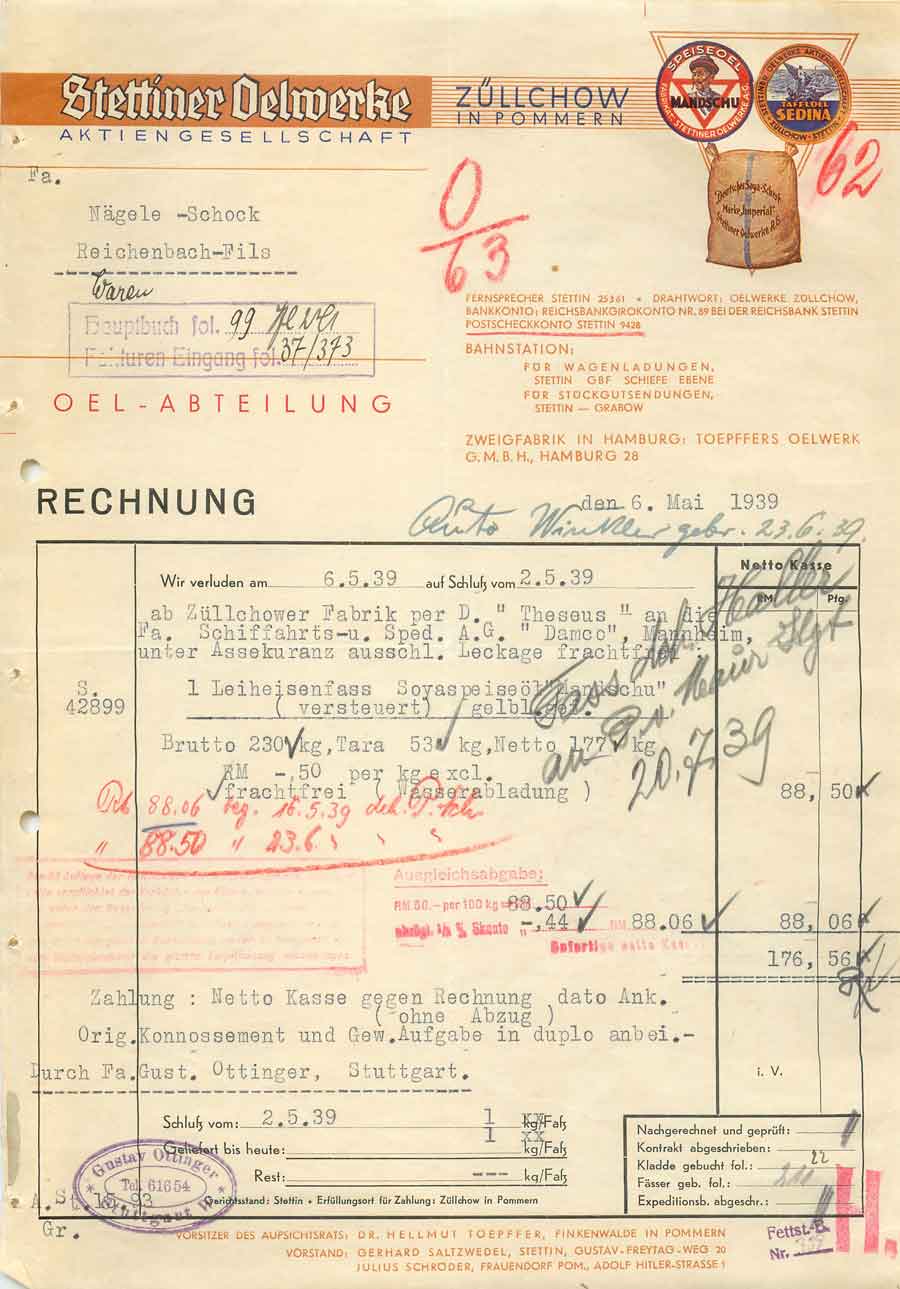 Stettiner Oelwerke
AKTIENGESELLSCHAFT
ZÜLLCHOW
IN POMMERN
SPEISEOEL
MANDSCHU
FABRIKAT STETTINER OELWERKE A.G.
STETTINER OELWERKE AKTIENGESELLSCHAFT
TAFELOEL
SEDINA
ZÜLLCHOW-STETTIN
Deutsches Soya-Schrot
Marke „Imperial"
Stettiner Oelwerke A.G.
62
Fa.
Nägele -Schock
Reichenbach-Fils
0/63
Waren
Hauptbuch fol. 99
Fakturen Eingang fol. 37/373
FERNSPRECHER STETTIN 25361 • DRAHTWORT: OELWERKE ZÜLLCHOW,
BANKKONTO: REICHSBANKGIROKONTO NR. 89 BEI DER REICHSBANK STETTIN
POSTSCHECKKONTO STETTIN 9428
BAHNSTATION:
FÜR WAGENLADUNGEN,
STETTIN GBF SCHIEFE EBENE
FÜR STÜCKGUTSENDUNGEN,
STETTIN — GRABOW
OEL-ABTEILUNG
ZWEIGFABRIK IN HAMBURG: TOEPFFERS OELWERK
G.M.B.H., HAMBURG 28
RECHNUNG
den 6. Mai 1939
Auto Winkler gebr. 23.6.39.
Netto Kasse
RM. Pfg.
Wir verluden am 6.5.39 auf Schluß vom 2.5.39
ab Züllchower Fabrik per D. " Theseus " an die
Fa. Schiffahrts-u. Sped. A.G. " Damco", Mannheim,
unter Assekuranz ausschl. Leckage frachtfrei :
S. 1 Leiheisenfass Soyaspeiseöl"Mandschu"
42899 ( versteuert) gelbl.gef.
Brutto 230 kg,Tara 53 kg,Netto 177 kg
RM -,50 per kg excl.
frachtfrei ( Wasserabladung ) 88, 50
Fass deh. Haller
an P. v. Maür Stgt
20.7.39
88.06 bez. 16.5.39
" 88.50 " 23.6. " " "
Ausgleichsabgabe:
RM 50.- per 100 kg = 88.50
abzügl. 1/2 % Skonto „ -,44 RM 88.06 88, 06
Sofortige netto Kasse
176, 56
Zahlung : Netto Kasse gegen Rechnung dato Ank.
( ohne Abzug )
Orig.Konnossement und Gew.Aufgabe in duplo anbei.-
Durch Fa.Gust. Ottinger, Stuttgart.
i. V.
Schluß vom: 2.5.39 1 kg/Faß
Geliefert bis heute: 1 kg/Faß
Rest: --- kg/Faß
Gerichtsstand: Stettin • Erfüllungsort für Zahlung: Züllchow in Pommern
Gustav Ottinger
Tel. 61654
Stuttgart W
A.St. 15 93
Gr.
Nachgerechnet und geprüft:
Kontrakt abgeschrieben:
Kladde gebucht fol.: 22
Fässer geb. fol.: 211
Expeditionsb. abgeschr.:
Fettst.-B.
Nr.
VORSITZER DES AUFSICHTSRATS: DR. HELLMUT TOEPFFER, FINKENWALDE IN POMMERN
VORSTAND: GERHARD SALTZWEDEL, STETTIN, GUSTAV-FREYTAG-WEG 20
JULIUS SCHRÖDER, FRAUENDORF POM., ADOLF HITLER-STRASSE 1